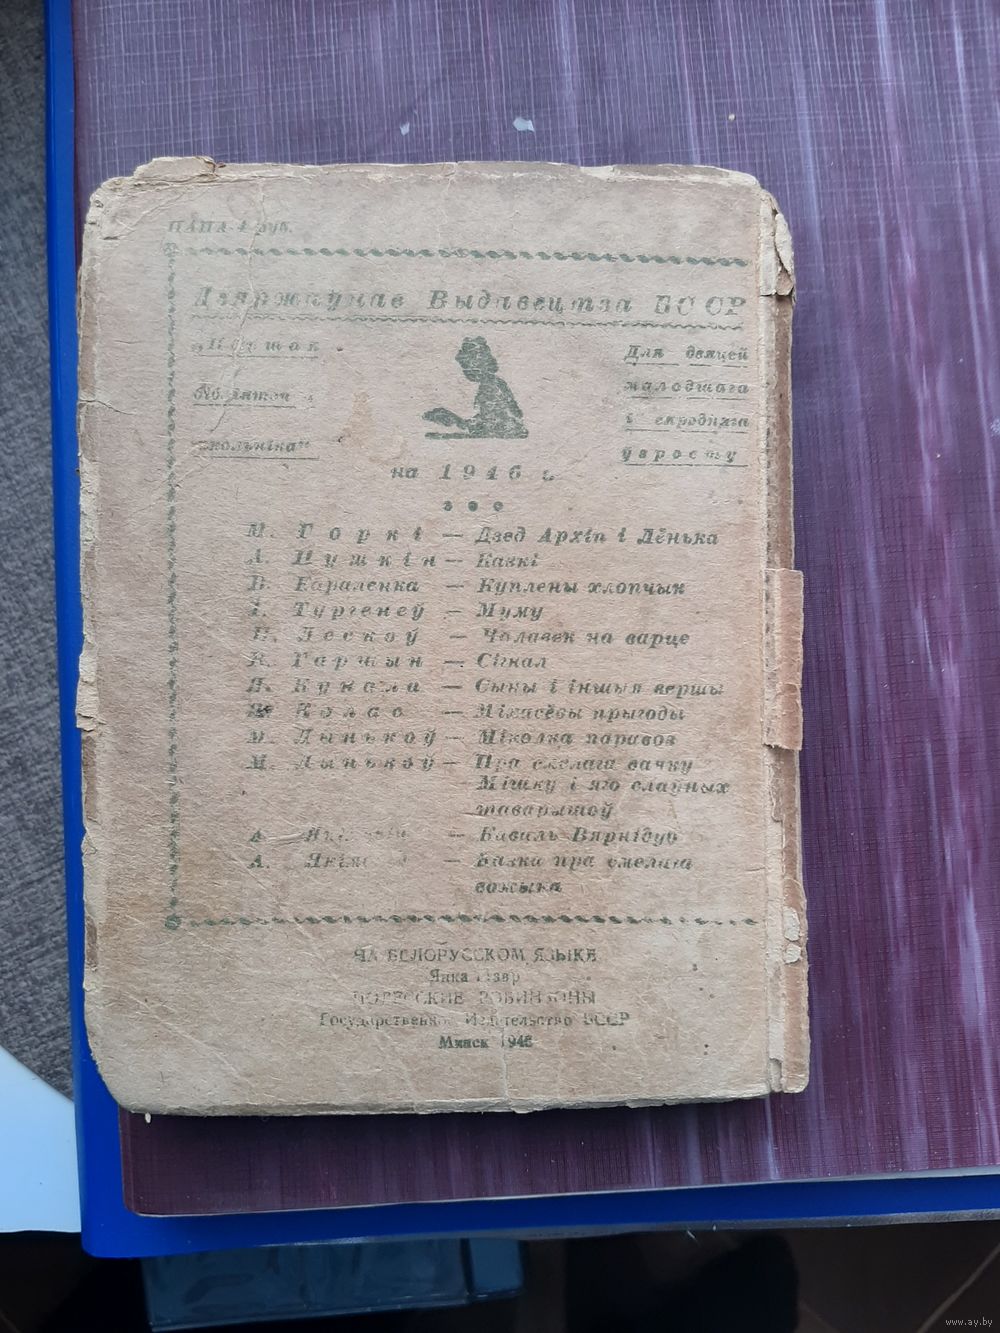 ЦАНА 4 руб.
Дзяржаўнае Выдавецтва БССР
Для дзяцей
малодшага
і сярэдняга
ўзросту
школьніка"
на 1946 г.
М. Горкі — Дзед Архіп і Лёнька
А. Пушкін — Казкі
В. Караленка — Куплены хлопчык
І. Тургенеў — Муму
Н. Лескоў — Чалавек на варце
В. Гаршын — Сігнал
Я. Купала — Сыны і іншыя вершы
Я. Колас — Міхасёвы прыгоды
М. Лынькоў — Міколка паравоз
М. Лынькоў — Пра смелага ваяку
Мішку і яго слаўных
таварышоў
А. — Каваль Вярнідуб
А. — Казка пра смелага
вожыка
НА БЕЛОРУССКОМ ЯЗЫКЕ
Янка Мавр
ПОЛЕССКИЕ РОБИНЗОНЫ
Государственное Издательство БССР
Минск 1946
www.ay.by